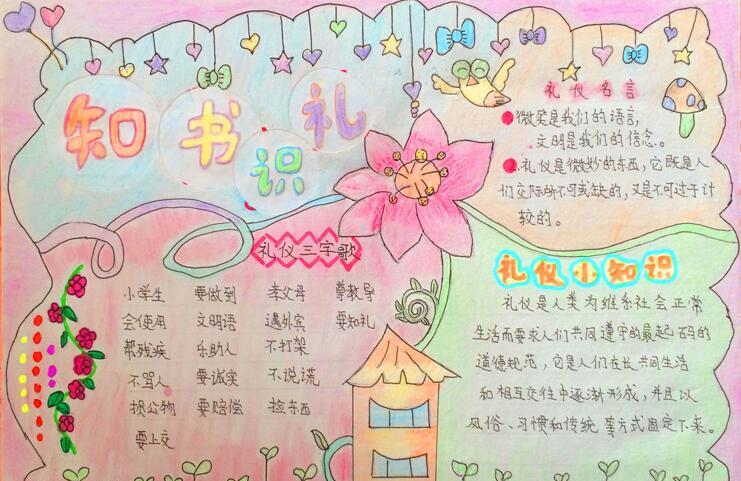 知书识礼
礼仪名言
微笑是我们的语言，
文明是我们的信念。
礼仪是微妙的东西，它既是人
们交际所不可或缺的，又是不可过于计
较的。
礼仪三字歌
小学生 要做到 孝父母 尊教导
会使用 文明语 遇外宾 要知礼
帮残疾 乐助人 不打架
不骂人 要诚实 不说谎
损公物 要赔偿 捡东西
要上交
礼仪小知识
礼仪是人类为维系社会正常
生活而要求人们共同遵守的最起码的
道德规范，它是人们在长共同生活
和相互交往中逐渐形成，并且以
风俗、习惯和传统 等方式固定下来。